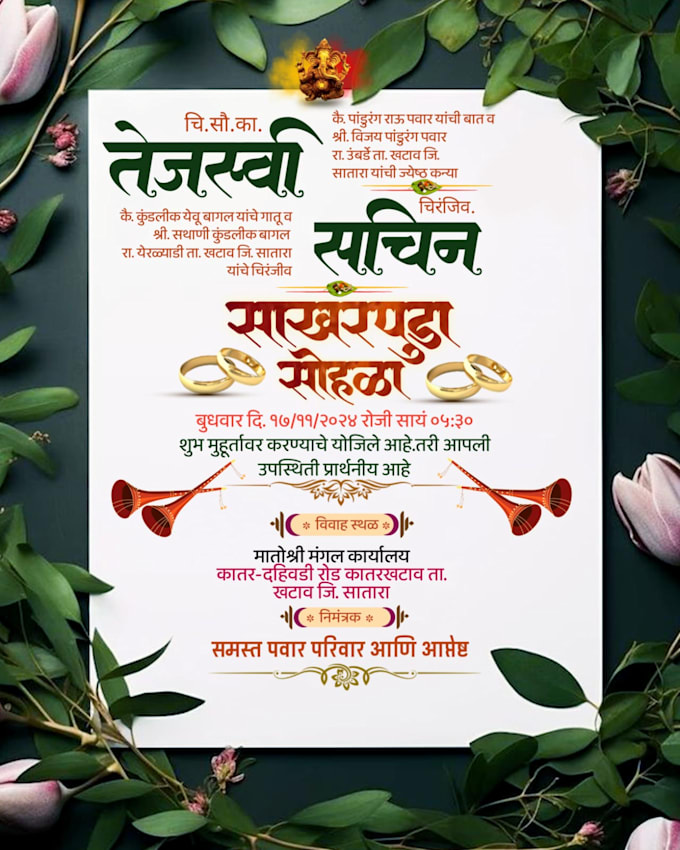 चि.सौ.का.
तेजस्वी
कै. पांडुरंग राऊ पवार यांची बात व
श्री. विजय पांडुरंग पवार
रा. उंबर्डे ता. खटाव जि.
सातारा यांची ज्येष्ठ कन्या
चिरंजिव.
सचिन
कै. कुंडलीक येवू बागल यांचे गातू व
श्री. सथाणी कुंडलीक बागल
रा. येरळ्याडी ता. खटाव जि. सातारा
यांचे चिरंजीव
साखरपुडा
सोहळा
बुधवार दि. १७/११/२०२४ रोजी सायं ०५:३०
शुभ मुहूर्तावर करण्याचे योजिले आहे.तरी आपली
उपस्थिती प्रार्थनीय आहे
विवाह स्थळ
मातोश्री मंगल कार्यालय
कातर-दहिवडी रोड कातरखटाव ता.
खटाव जि. सातारा
निमंत्रक
समस्त पवार परिवार आणि आप्तेष्ट